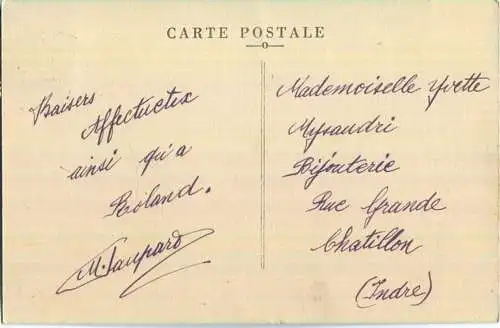 CARTE POSTALE
Baisers
Affectuetex
ainsi qu'a
Roland.
M.
Mademoiselle Yvette
Mysandri
Bijouterie
Rue Grande
Chatillon
(Indre)